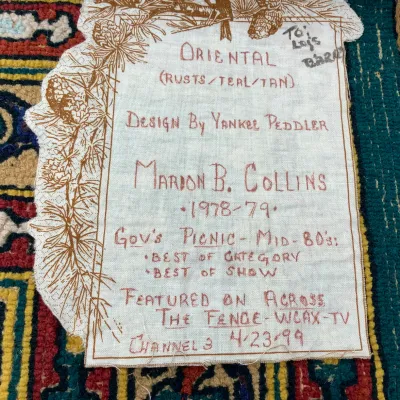 To:
Lois
ORIENTAL
(RUSTS/TEAL/TAN)
DESIGN BY YANKEE PEDDLER
MARION B. COLLINS
• 1978-79 •
GOV'S PICNIC - MID-80's:
• BEST OF CATEGORY
• BEST OF SHOW
FEATURED ON ACROSS
THE FENCE - WCAX-TV
CHANNEL 3 4-23-99